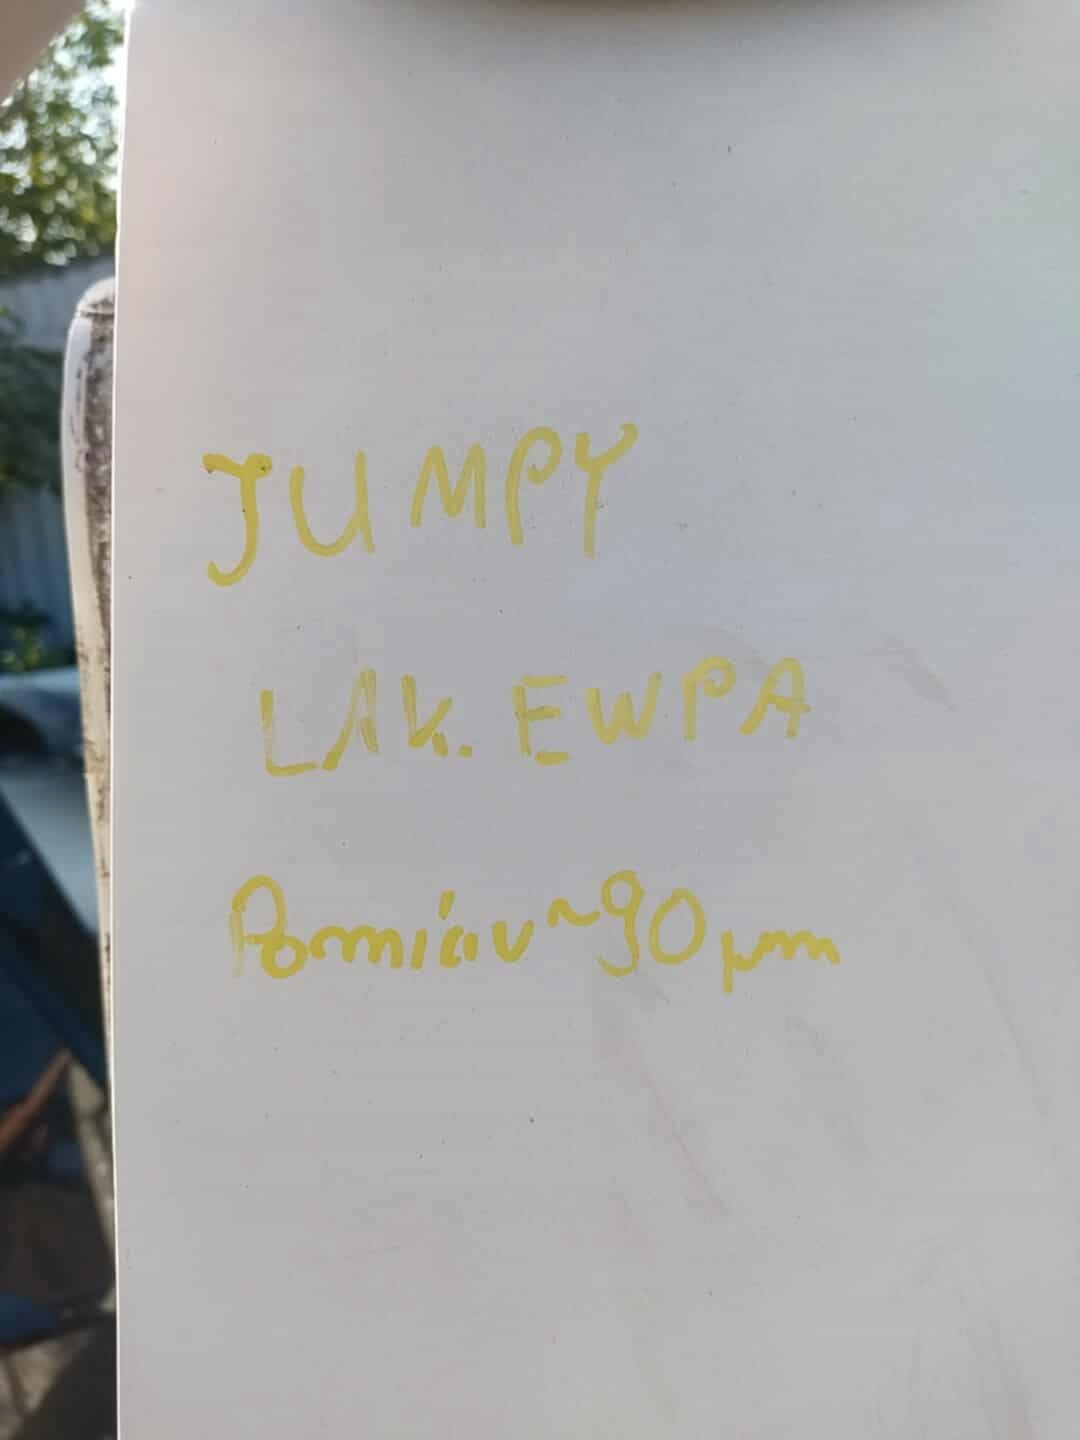 JUMPY
LAK. EWPA
Pomiar ~90 μm